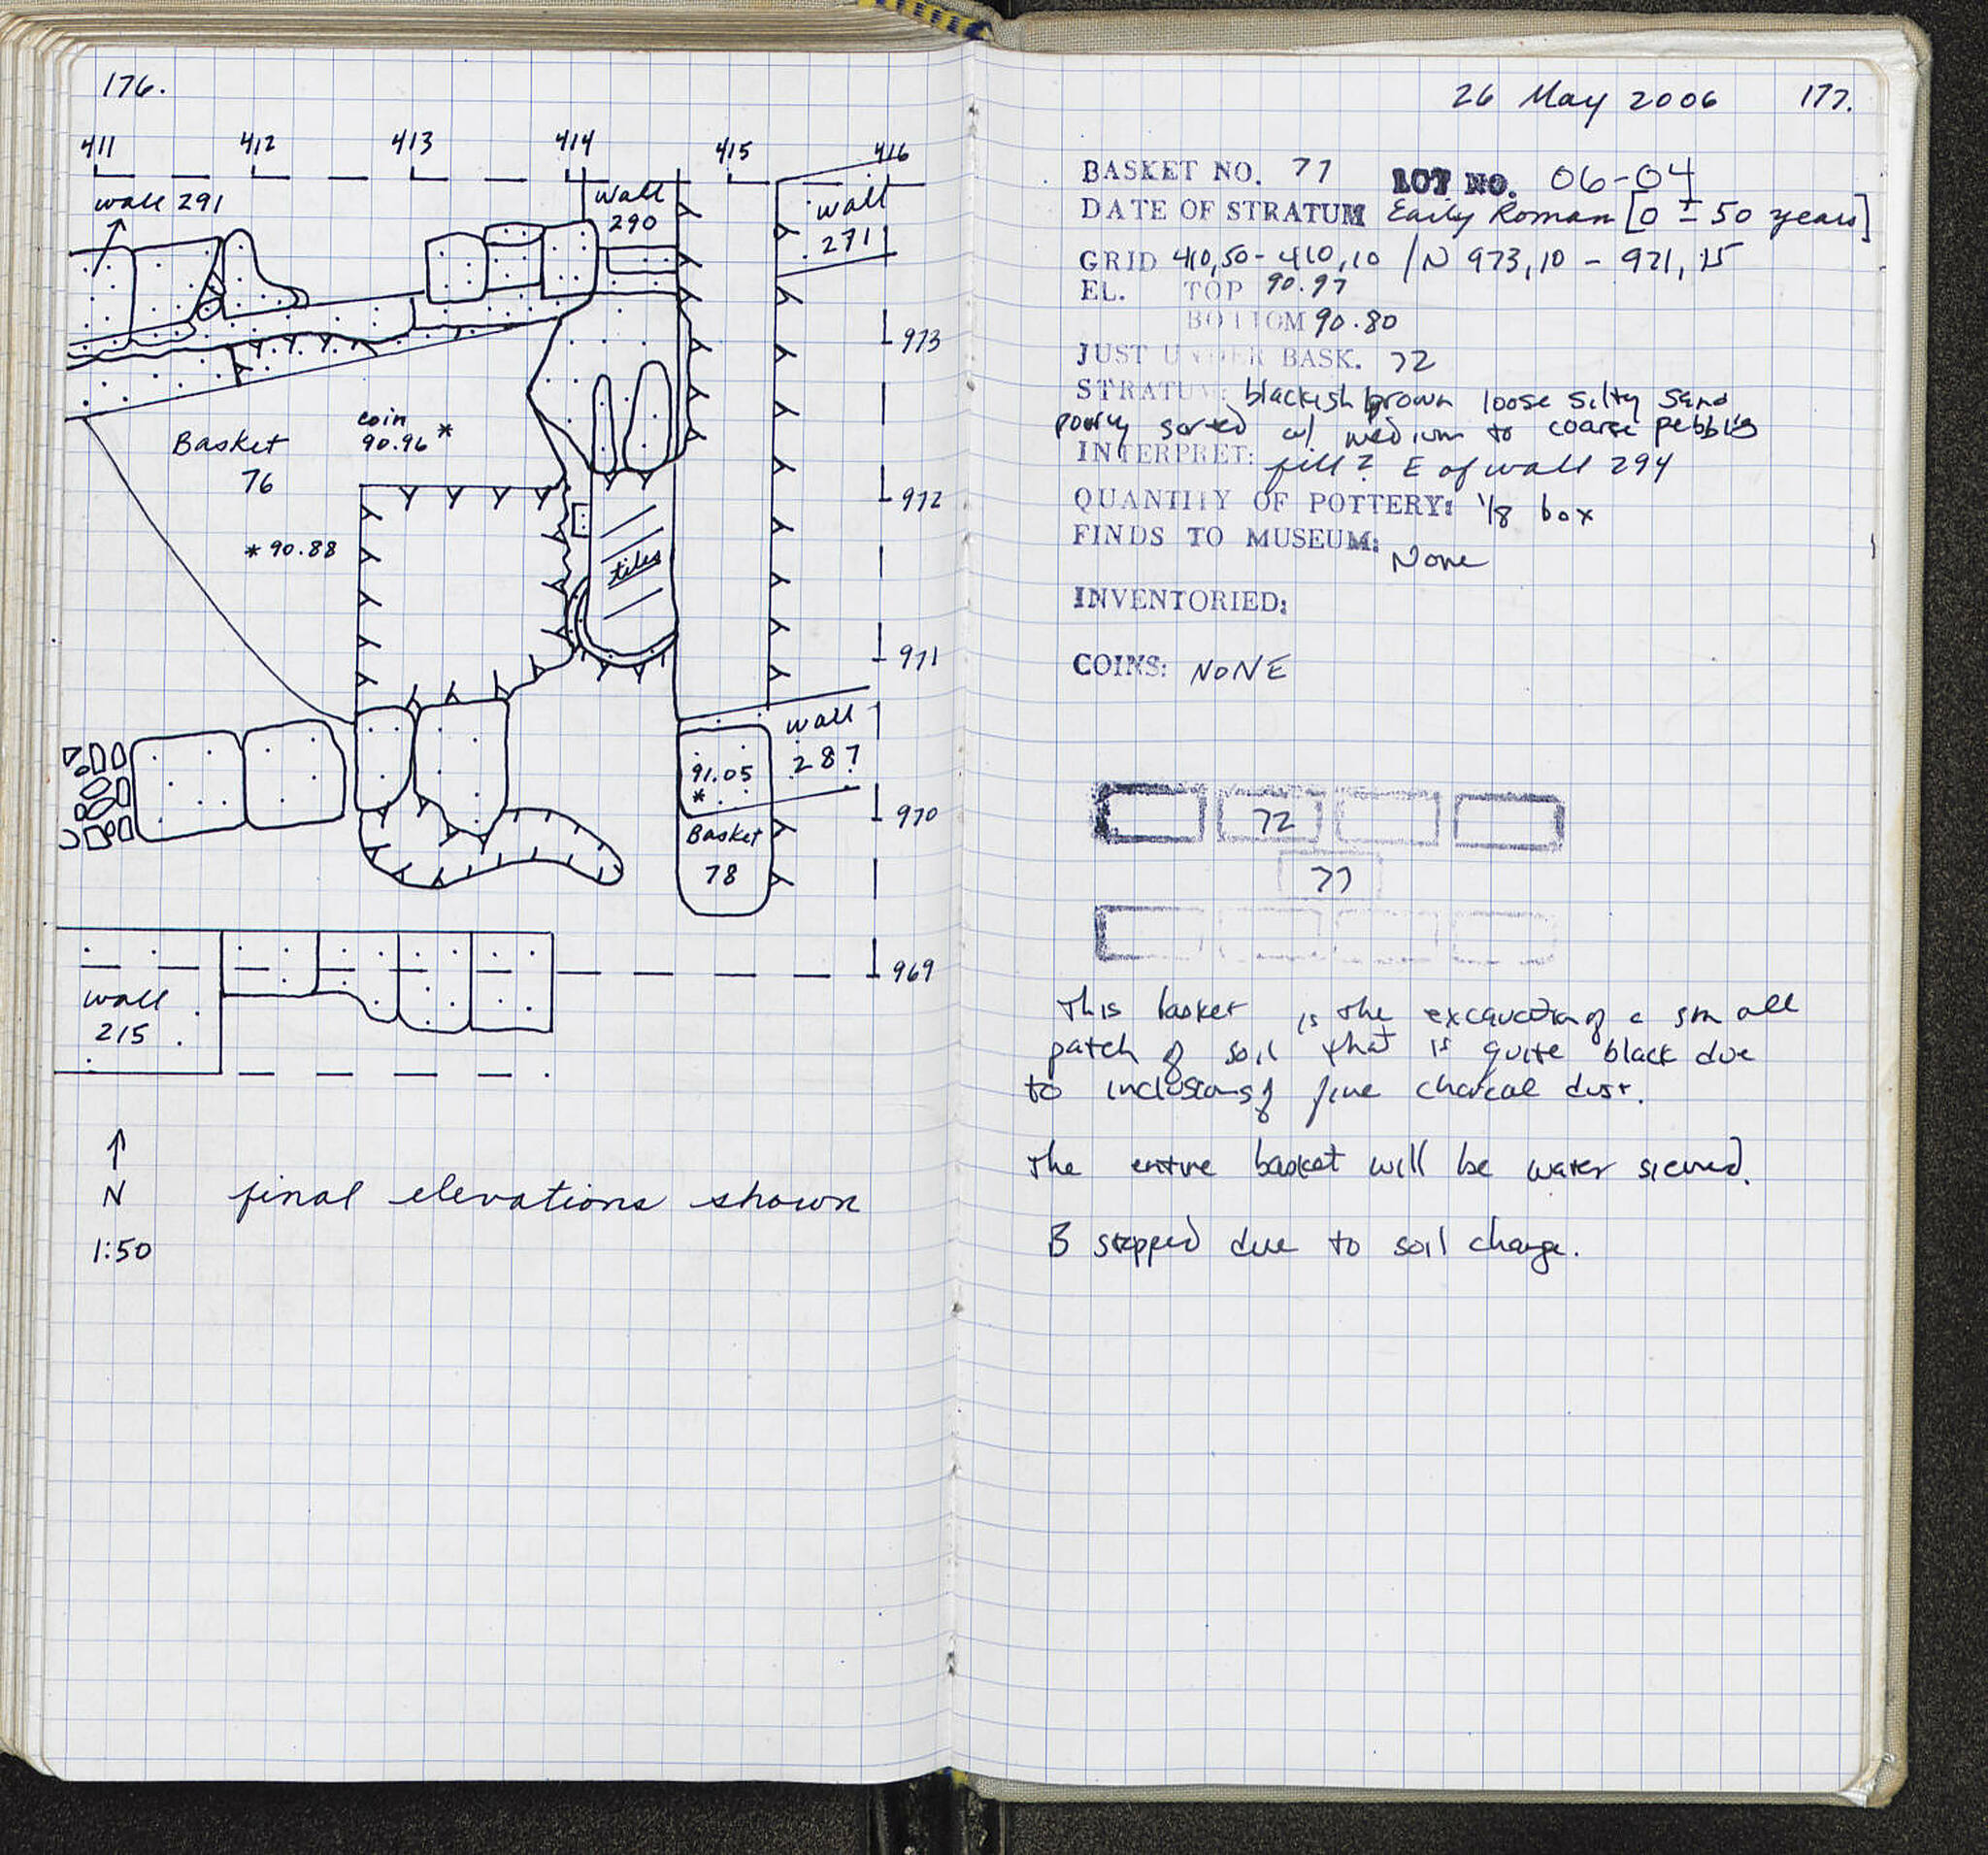 176.
411 412 413 414 415 416
wall 291
wall
290
wall
271
973
coin
90.96 *
Basket
76
972
* 90.88
tiles
971
wall
287
91.05
*
970
Basket
78
969
wall
215
N
1:50
final elevations shown
26 May 2006 177.
BASKET NO. 77 LOT NO. 06-04
DATE OF STRATUM Early Roman [0 ± 50 years]
GRID 410,50 - 410,10 / N 973,10 - 971,15
EL. TOP 90.97
BOTTOM 90.80
JUST UNDER BASK. 72
STRATUM: blackish brown loose silty sand
poorly sorted w/ medium to coarse pebbles
INTERPRET: fill? E of wall 294
QUANTITY OF POTTERY: 1/8 box
FINDS TO MUSEUM:
None
INVENTORIED:
COINS: NONE
72
77
This basket is the excavation of a small
patch of soil that is quite black due
to inclusions of fine charcoal dust.
The entire basket will be water sieved.
B stopped due to soil change.